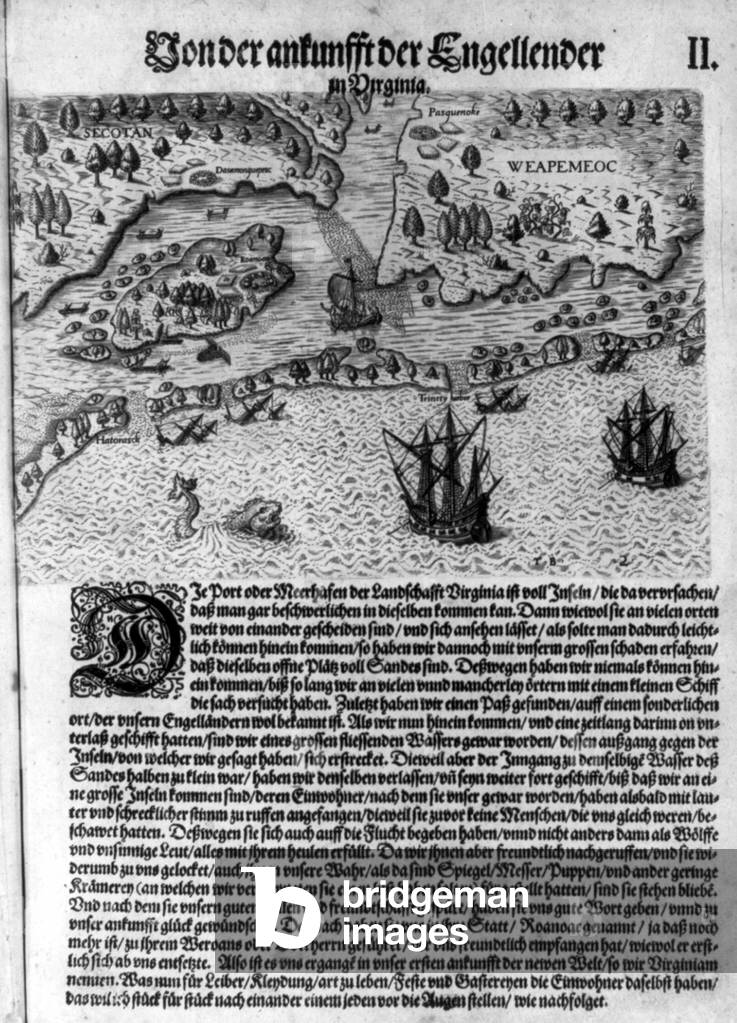 Von der ankunfft der Engellender
II.
in Virginia.
Pasquenoke
SECOTAN
WEAPEMEOC
Dasemonquepeuc
Roanoac
Trinety harbor
Hatorasck
T B
2
DIe Port oder Meerhafen der Landschafft Virginia ist voll Inseln / die da vervrsachen /
daß man gar beschwerlichen in dieselben kommen kan. Dann wiewol sie an vielen orten
weit von einander gescheiden sind / vnd sich ansehen lässet / als solte man dadurch leicht-
lich können hinein kommen / so haben wir dannoch mit vnserm grossen schaden erfahren /
daß dieselben offne Plätz voll Sandes sind. Deßwegen haben wir niemals können hin-
ein kommen / biß so lang wir an vielen vnnd mancherley örtern mit einem kleinen Schiff
die sach versucht haben. Zuletzt haben wir einen Paß gefunden / auff einem sonderlichen
ort / der vnsern Engelländern wol bekannt ist. Als wir nun hinein kommen / vnd eine zeitlang darinn on vn-
terlaß geschifft hatten / sind wir eines grossen fliessenden Wassers gewar worden / dessen außgang gegen der
Inseln / von welcher wir gesagt haben / sich erstrecket. Dieweil aber der Inngang zu demselbigē Wasser deß
Sandes halben zu klein war / haben wir denselben verlassen / vñ seyn weiter fort geschifft / biß daß wir an ei-
ne grosse Inseln kommen sind / deren Einwohner / nach dem sie vnser gewar worden / haben alsbald mit lau-
ter vnd schrecklicher stimm zu ruffen angefangen / dieweil sie zuvor keine Menschen / die vns gleich weren / be-
schawet hatten. Deßwegen sie sich auch auff die Flucht begeben haben / vnnd nicht anders dann als Wölffe
vnd vnsinnige Leut / alles mit ihrem heulen erfüllt. Da wir ihnen aber freundtlich nachgeruffen / vnd sie wi-
derumb zu vns gelocket / auch vnsere Wahr / als da sind Spiegel / Messer / Puppen / vnd ander geringe
Krämerey (an welchen wir sie hatten / sind sie stehen bliebē.
Vnd nach dem sie vnsern guten haben sie vns gute Wort geben / vnnd zu
vnser ankunfft glück gewündschet. Statt / Roanoac genannt / ja daß noch
mehr ist / zu ihrem Weroans freundtlich empfangen hat / wiewol er erst-
lich sich ab vns entsetzte. Also ist es vns ergangē in vnser ersten ankunfft der newen Welt / so wir Virginiam
nennen. Was nun für Leiber / Kleydung / art zu leben / Feste vnd Gastereyen die Einwohner daselbst haben /
das wil ich stück für stück nach einander einem jeden vor die Augen stellen / wie nachfolget.
b bridgeman
images